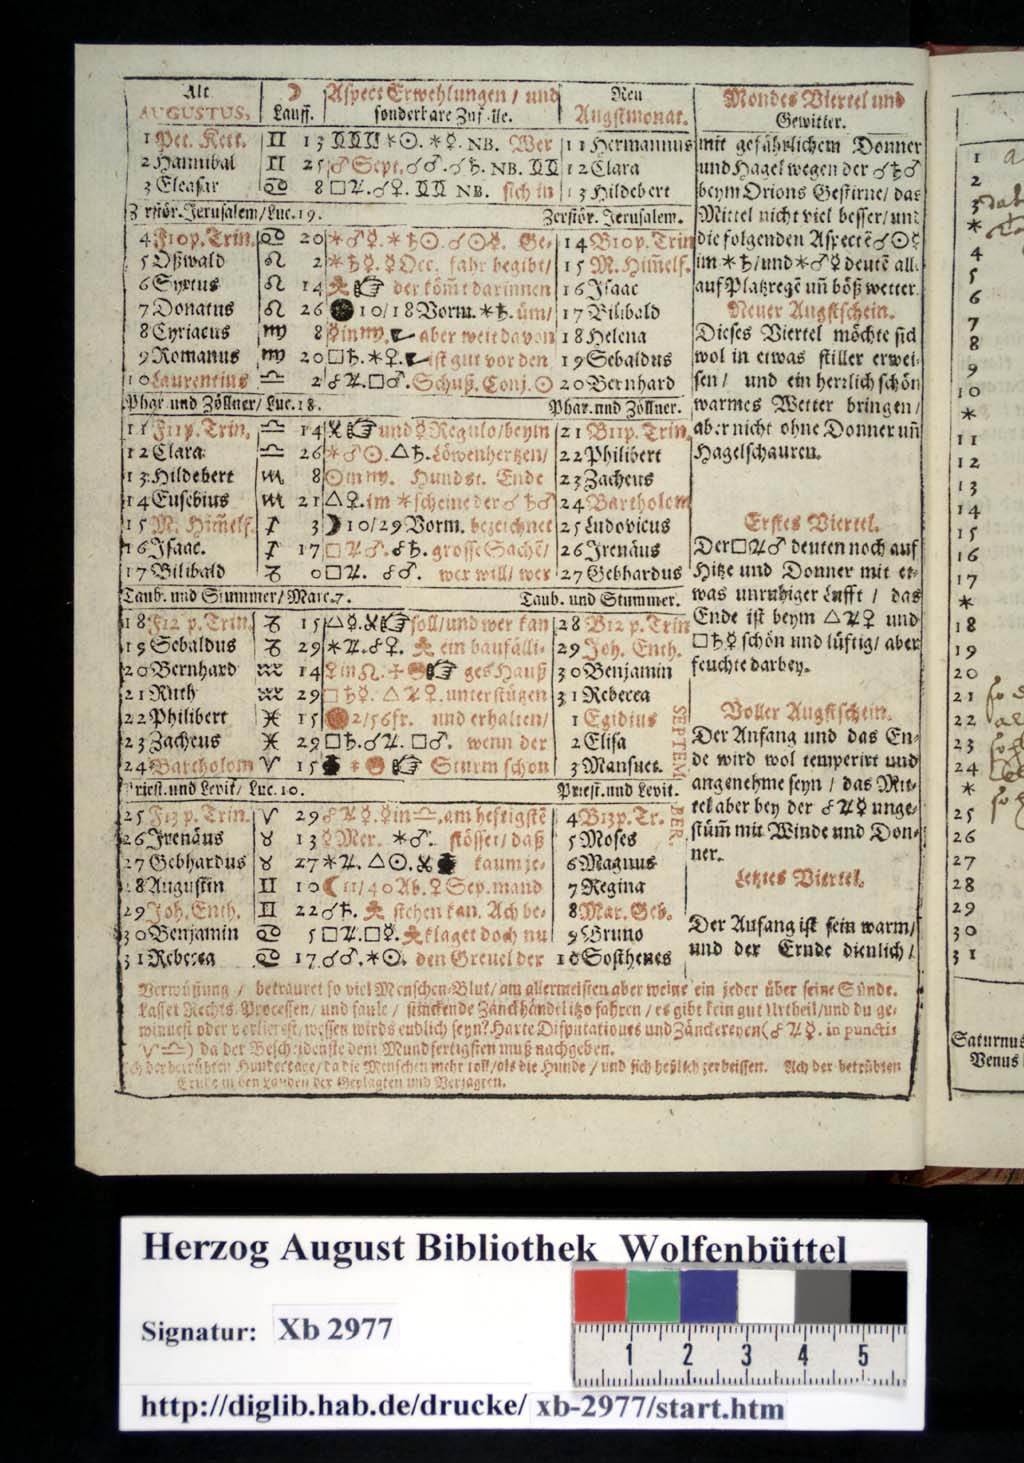 Alt AUGUSTUS, | ☽ Lauff. | Aspect Erwehlungen / und sonderbare Zufälle. | Neu Augstmonat. | Mondes Viertel und Gewitter.
1 Pet. Kett. ♊ 13 ♊♊♊ ⚹☉. ⚹☿. NB. Wer 11 Hermannus
2 Hannibal ♊ 25 ♂ Sept. ☌♂. ☌♄. NB. ♊♊ 12 Clara
3 Eleasar ♋ 8 □♃. ☌♀. ♊♊ NB. sich in 13 Hildebert
Zerstör. Jerusalem / Luc. 19. Zerstör. Jerusalem.
4 F10 p. Trin. ♋ 20 ⚹♂☿. ⚹♄☉. ☌☉☿. Ge- 14 B10 p. Trin
5 Oßwald ♌ 2 ⚹♄☿. ☿ Occ. fahr begibt / 15 M. Him̃elf.
6 Syxtus ♌ 14 ☞ der köm̃t darinnen 16 Isaac
7 Donatus ♌ 26 ● 10/18 Vorm. ⚹♄. üm / 17 Bilibald
8 Cyriacus ♍ 8 ☿ in ♍. aber weit davon 18 Helena
9 Romanus ♍ 20 □♄. ⚹♀. ist gut vor den 19 Sebaldus
10 Laurentius ♎ 2 ☍♃. □♂. Schuß. Conj. ☉ 20 Bernhard
Phar. und Zöllner / Luc. 18. Phar. und Zöllner.
11 F11 p. Trin. ♎ 14 ☞ und ☿ Regulo / beym 21 B11 p. Trin.
12 Clara ♎ 26 ⚹♂☉. △♄. Löwenhertzen / 22 Philibert
13 Hildebert ♏ 8 ☉ in ♍. Hundst. Ende 23 Zacheus
14 Eusebius ♏ 21 △♀. im ⚹ scheine der ☌♄♂ 24 Bartholom
15 M. Him̃elf. ♐ 3 ☽ 10/29 Vorm. bezeichnet 25 Ludovicus
16 Isaac. ♐ 17 □♃♂. ☍♄. grosse Sachẽ / 26 Irenäus
17 Bilibald ♑ 0 □♃. ☍♂. wer will / wer 27 Gebhardus
Taub. und Stummer / Marc. 7. Taub. und Stummer.
18 F12 p. Trin. ♑ 15 △☿. ☞ soll / und wer kan 28 B12 p. Trin
19 Sebaldus ♑ 29 ⚹♃. ☍♀. ein baufälli- 29 Joh. Enth.
20 Bernhard ♒ 14 ♀ in ♌. ☞ ges Hauß 30 Benjamin
21 Ruth ♒ 29 □♄☿. △♃♀. unterstützen 31 Rebecca
22 Philibert ♓ 15 2/56 fr. und erhalten / 1 Egidius
23 Zacheus ♓ 29 □♄. ☌♃. □♂. wenn der 2 Elisa
24 Bartholom ♈ 15 ⚹ ☞ Sturm schon 3 Mansuet.
SEPTEMBER.
Priest. und Levit / Luc. 10. Priest. und Levit.
25 F13 p. Trin. ♈ 29 ☍♃☿. ☿ in ♎. am heftigstẽ 4 B13 p. Tr.
26 Irenäus ♉ 13 ☿ Mer. ⚹♂. stösset / daß 5 Moses
27 Gebhardus ♉ 27 ⚹♃. △☉. kaum je- 6 Magnus
28 Augustin ♊ 10 ☾ 11/40 Ab. ♀ Sep. mand 7 Regina
29 Joh. Enth. ♊ 22 ☌♄. stehen kan. Ach be- 8 Mar. Geb.
30 Benjamin ♋ 5 □♃. □☿. klaget doch nu 9 Bruno
31 Rebecca ♋ 17 ☌♂. ⚹☉. den Greuel der 10 Sosthenes
mit gefährlichem Donner
und Hagel wegen der ☌♄♂
beym Orions Gestirne / das
Mittel nicht viel besser / und
die folgenden Aspectẽ ☌☉☿
im ⚹♄ / und ⚹♂☿ deutẽ all.
auf Platzregẽ uñ böß wetter.
Neuer Augstschein.
Dieses Viertel möchte sich
wol in etwas stiller erwei-
sen / und ein herrlich schön
warmes Wetter bringen /
aber nicht ohne Donner uñ
Hagelschauren.
Erstes Viertel.
Der □♃♂ deuten noch auf
Hitze und Donner mit et-
was unruhiger Lufft / das
Ende ist beym △♃♀ und
□♄☿ schön und lüftig / aber
feuchte darbey.
Voller Augstschein.
Der Anfang und das En-
de wird wol temperirt und
angenehme seyn / das Mit-
tel aber bey der ☍♃☿ unge-
stüm̃ mit Winde und Don-
ner.
Letztes Viertel.
Der Anfang ist fein warm /
und der Ernde dienlich /
Verwüstung / betrauret so viel Menschen-Blut / am allermeisten aber weine ein jeder über seine Sünde.
Lasset Rechts-Processen / und faule / stinckende Zanckhändel itzo fahren / es gibt kein gut Urtheil / und du ge-
winnest oder verlierest / wessen wirds endlich seyn? Harte Disputationes und Zänckereyen (☍♃☿. in punctis
♈♎) da der Bescheidenste dem Mundfertigsten muß nachgeben.
Ach der betrübten Hundestage / da die Menschen mehr toll / als die Hunde / und sich heßlich zerbeissen. Ach der betrübten
Ernde in den Landen der Geplagten und Verjagten.
1
2
3
*
4
5
6
7
8
9
10
*
11
12
13
14
15
16
17
*
18
19
20
21
22
23
24
*
25
26
27
28
29
30
31
Saturnus
Venus
Herzog August Bibliothek Wolfenbüttel
Signatur: Xb 2977
1 2 3 4 5
http://diglib.hab.de/drucke/ xb-2977/start.htm